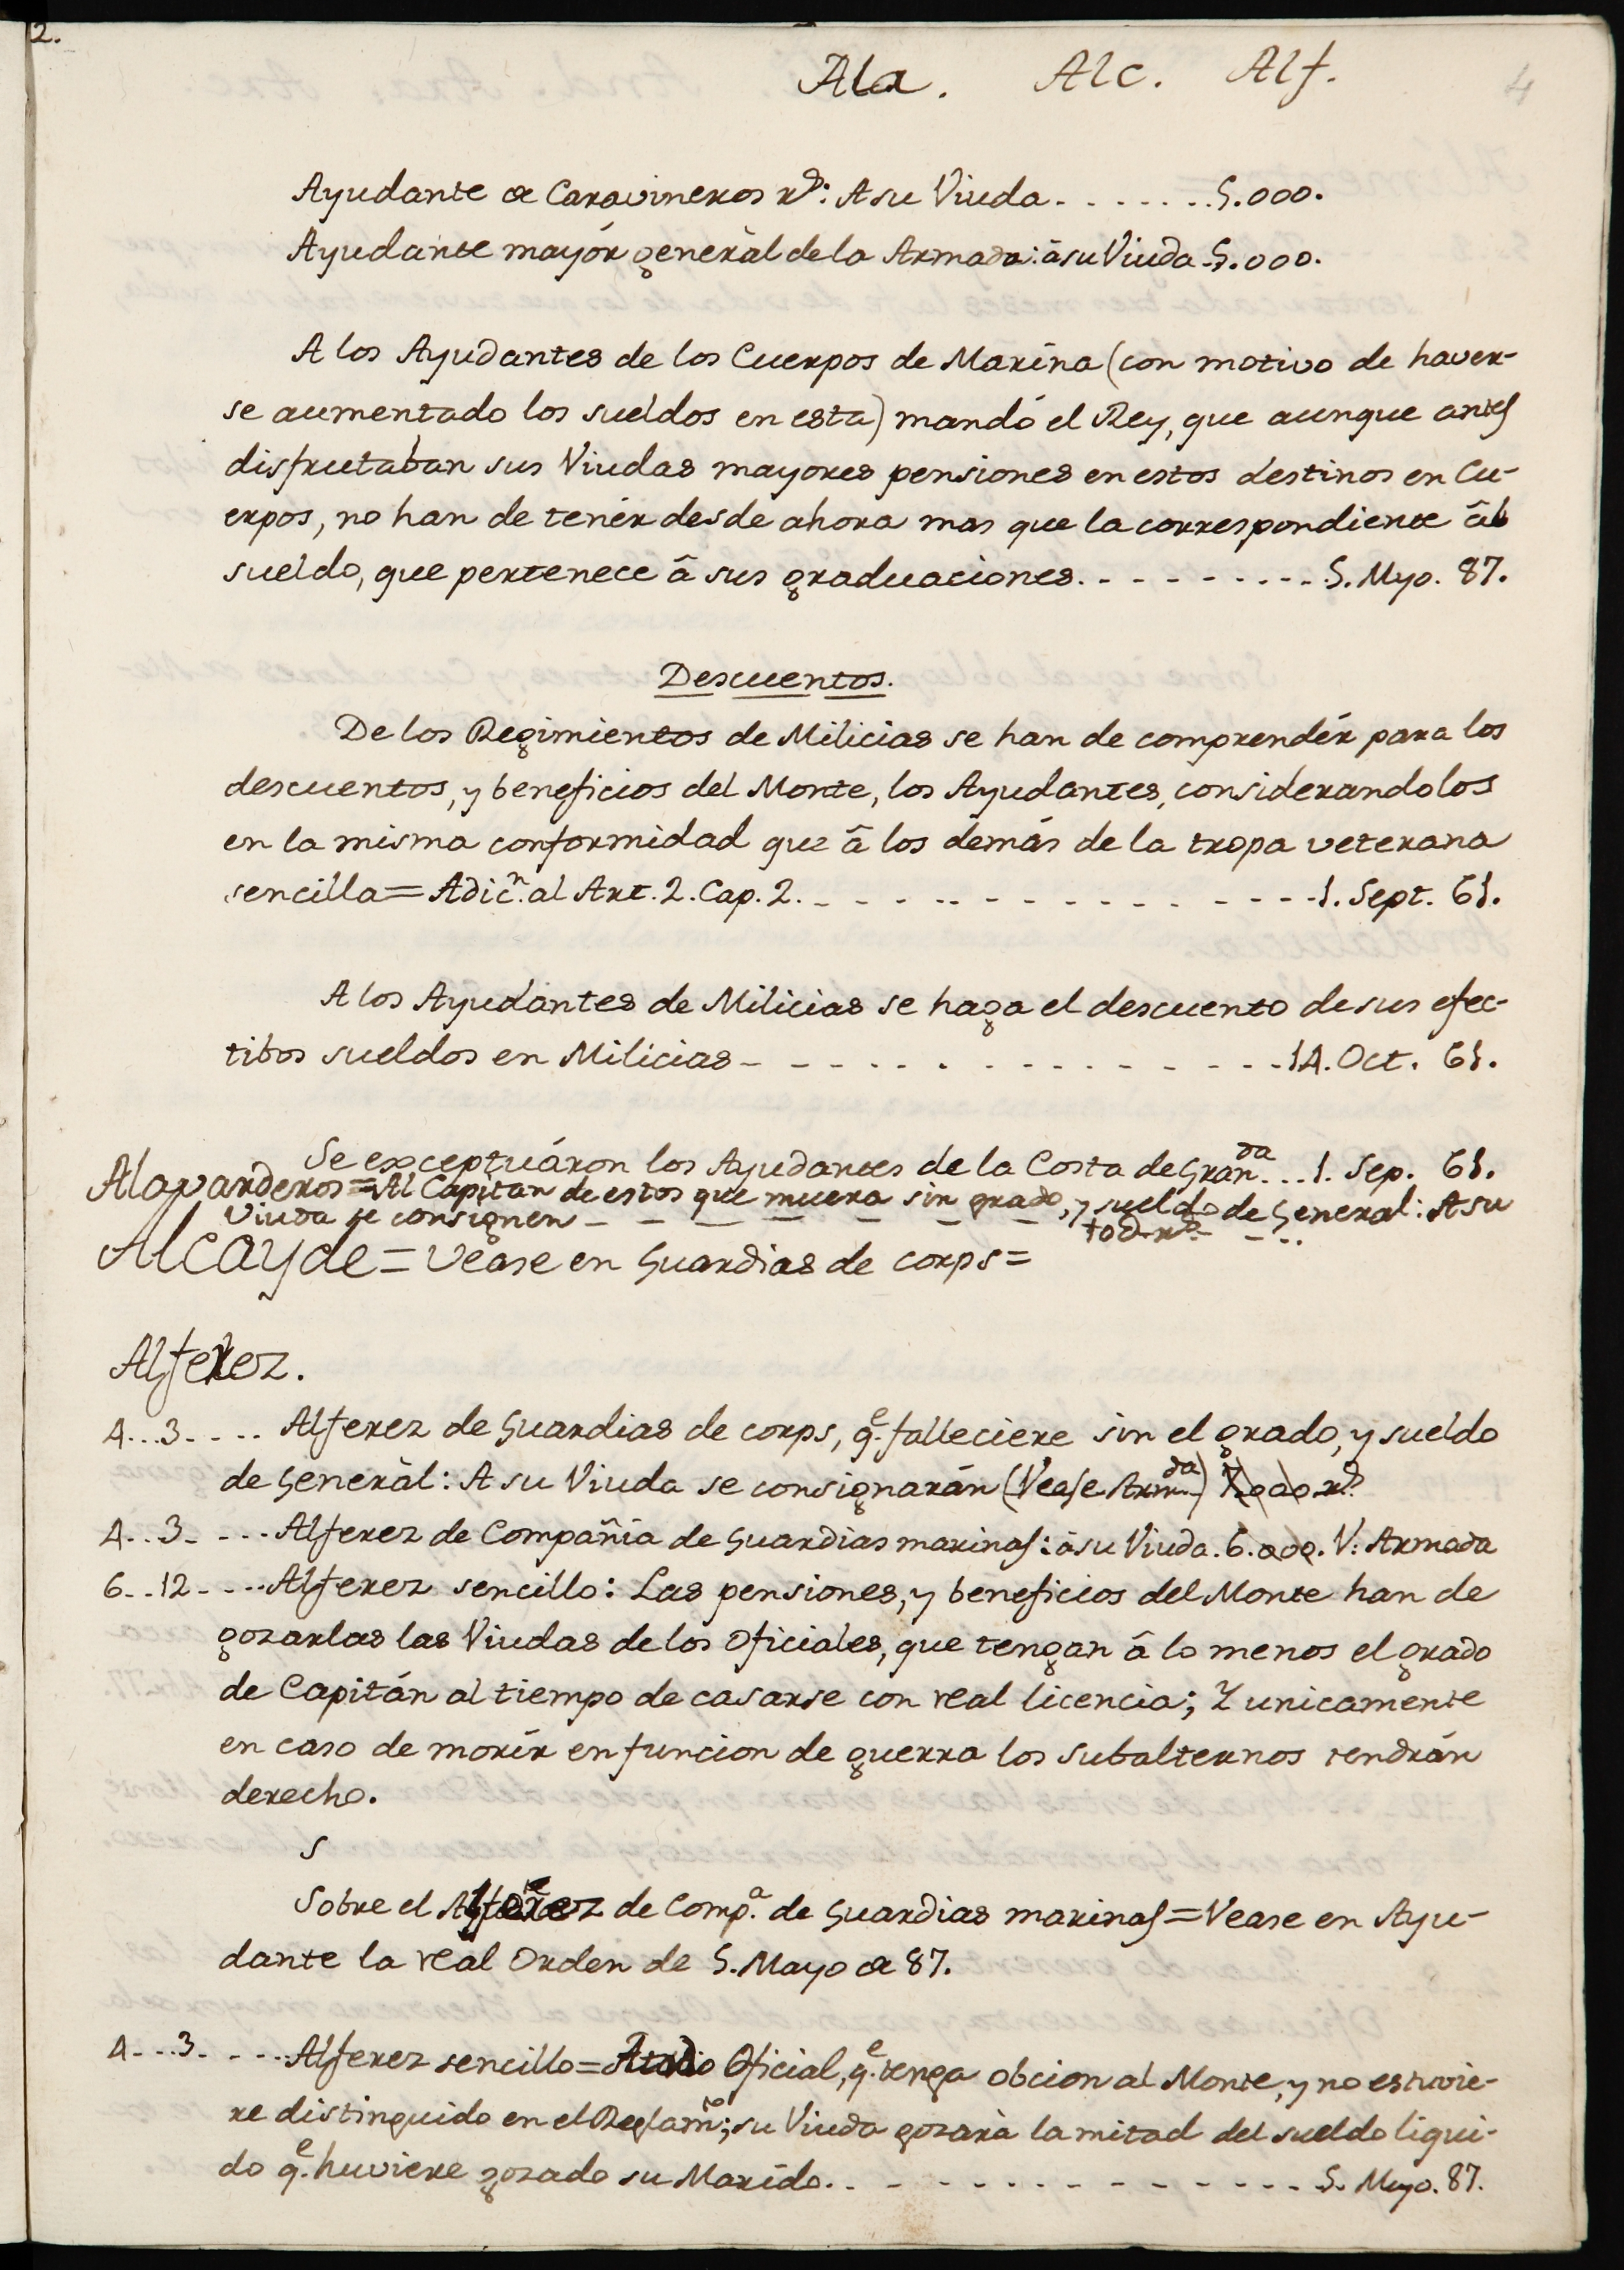 2.
Ala. Alc. Alf.
4
Ayudante de Caravineros rs: A su Viuda. - - - - - - . 5.000.
Ayudante mayór generàl de la Armada: â su Viuda. 5.000.
A los Ayudantes de los Cuerpos de Marína (con motivo de haver-
se aumentado los sueldos en esta) mandó el Rey, que aunque antes
disfrutaban sus Viudas mayores pensiones en estos destinos en Cu-
erpos, no han de tenér desde ahora mas que la correspondiente âl
sueldo, que pertenece â sus graduaciones. - - - - - - - - - 5. Myo. 87.
Descuentos.
De los Regimientos de Milicias se han de comprendér para los
descuentos, y beneficios del Monte, los Ayudantes, considerandolos
en la misma conformidad que â los demás de la tropa veterana
sencilla = Adicn. al Art. 2. Cap. 2. - - - - - - - - - - - - - 1. Sept. 61.
A los Ayudantes de Milicias se haga el descuento de sus efec-
tibos sueldos en Milicias - - - - - - - - - - - - - - 14. Oct. 61.
Se exceptuáron los Ayudantes de la Costa de Granda. . . 1. Sep. 61.
Alavarderos = Al Capitan de estos que muera sin grado, y sueldo de General: A su
Viuda se consignen - - - - - - - -
Alcayde = Vease en Guardias de corps =
Alferez.
4 . . . 3 - - - - Alferez de Guardias de corps, qe. falleciere sin el grado, y sueldo
de Generàl: A su Viuda se consignarán (Vease Armda)
4 . . 3 - - - - Alferez de Compañia de Guardias marinas: â su Viuda. 6.000. V. Armada
6 . . 12 - - - - Alferez sencillo: Las pensiones, y beneficios del Monte han de
gozarlas las Viudas de los Oficiales, que tengan â lo menos el grado
de Capitán al tiempo de casarse con real licencia; Y unicamente
en caso de morír en funcion de guerra los subalternos tendrán
derecho.
S
Sobre el Alferez de Compa. de Guardias marinas = Vease en Ayu-
dante la real Orden de 5. Mayo de 87.
4 - - - 3 - - - - Alferez sencillo = Oficial, qe. tenga obcion al Monte, y no estuvie-
re distinguido en el Reglamto; su Viuda gozarà la mitad del sueldo liqui-
do qe. huviere gozado su Marído. - - - - - - - - - - - - 5. Mayo. 87.